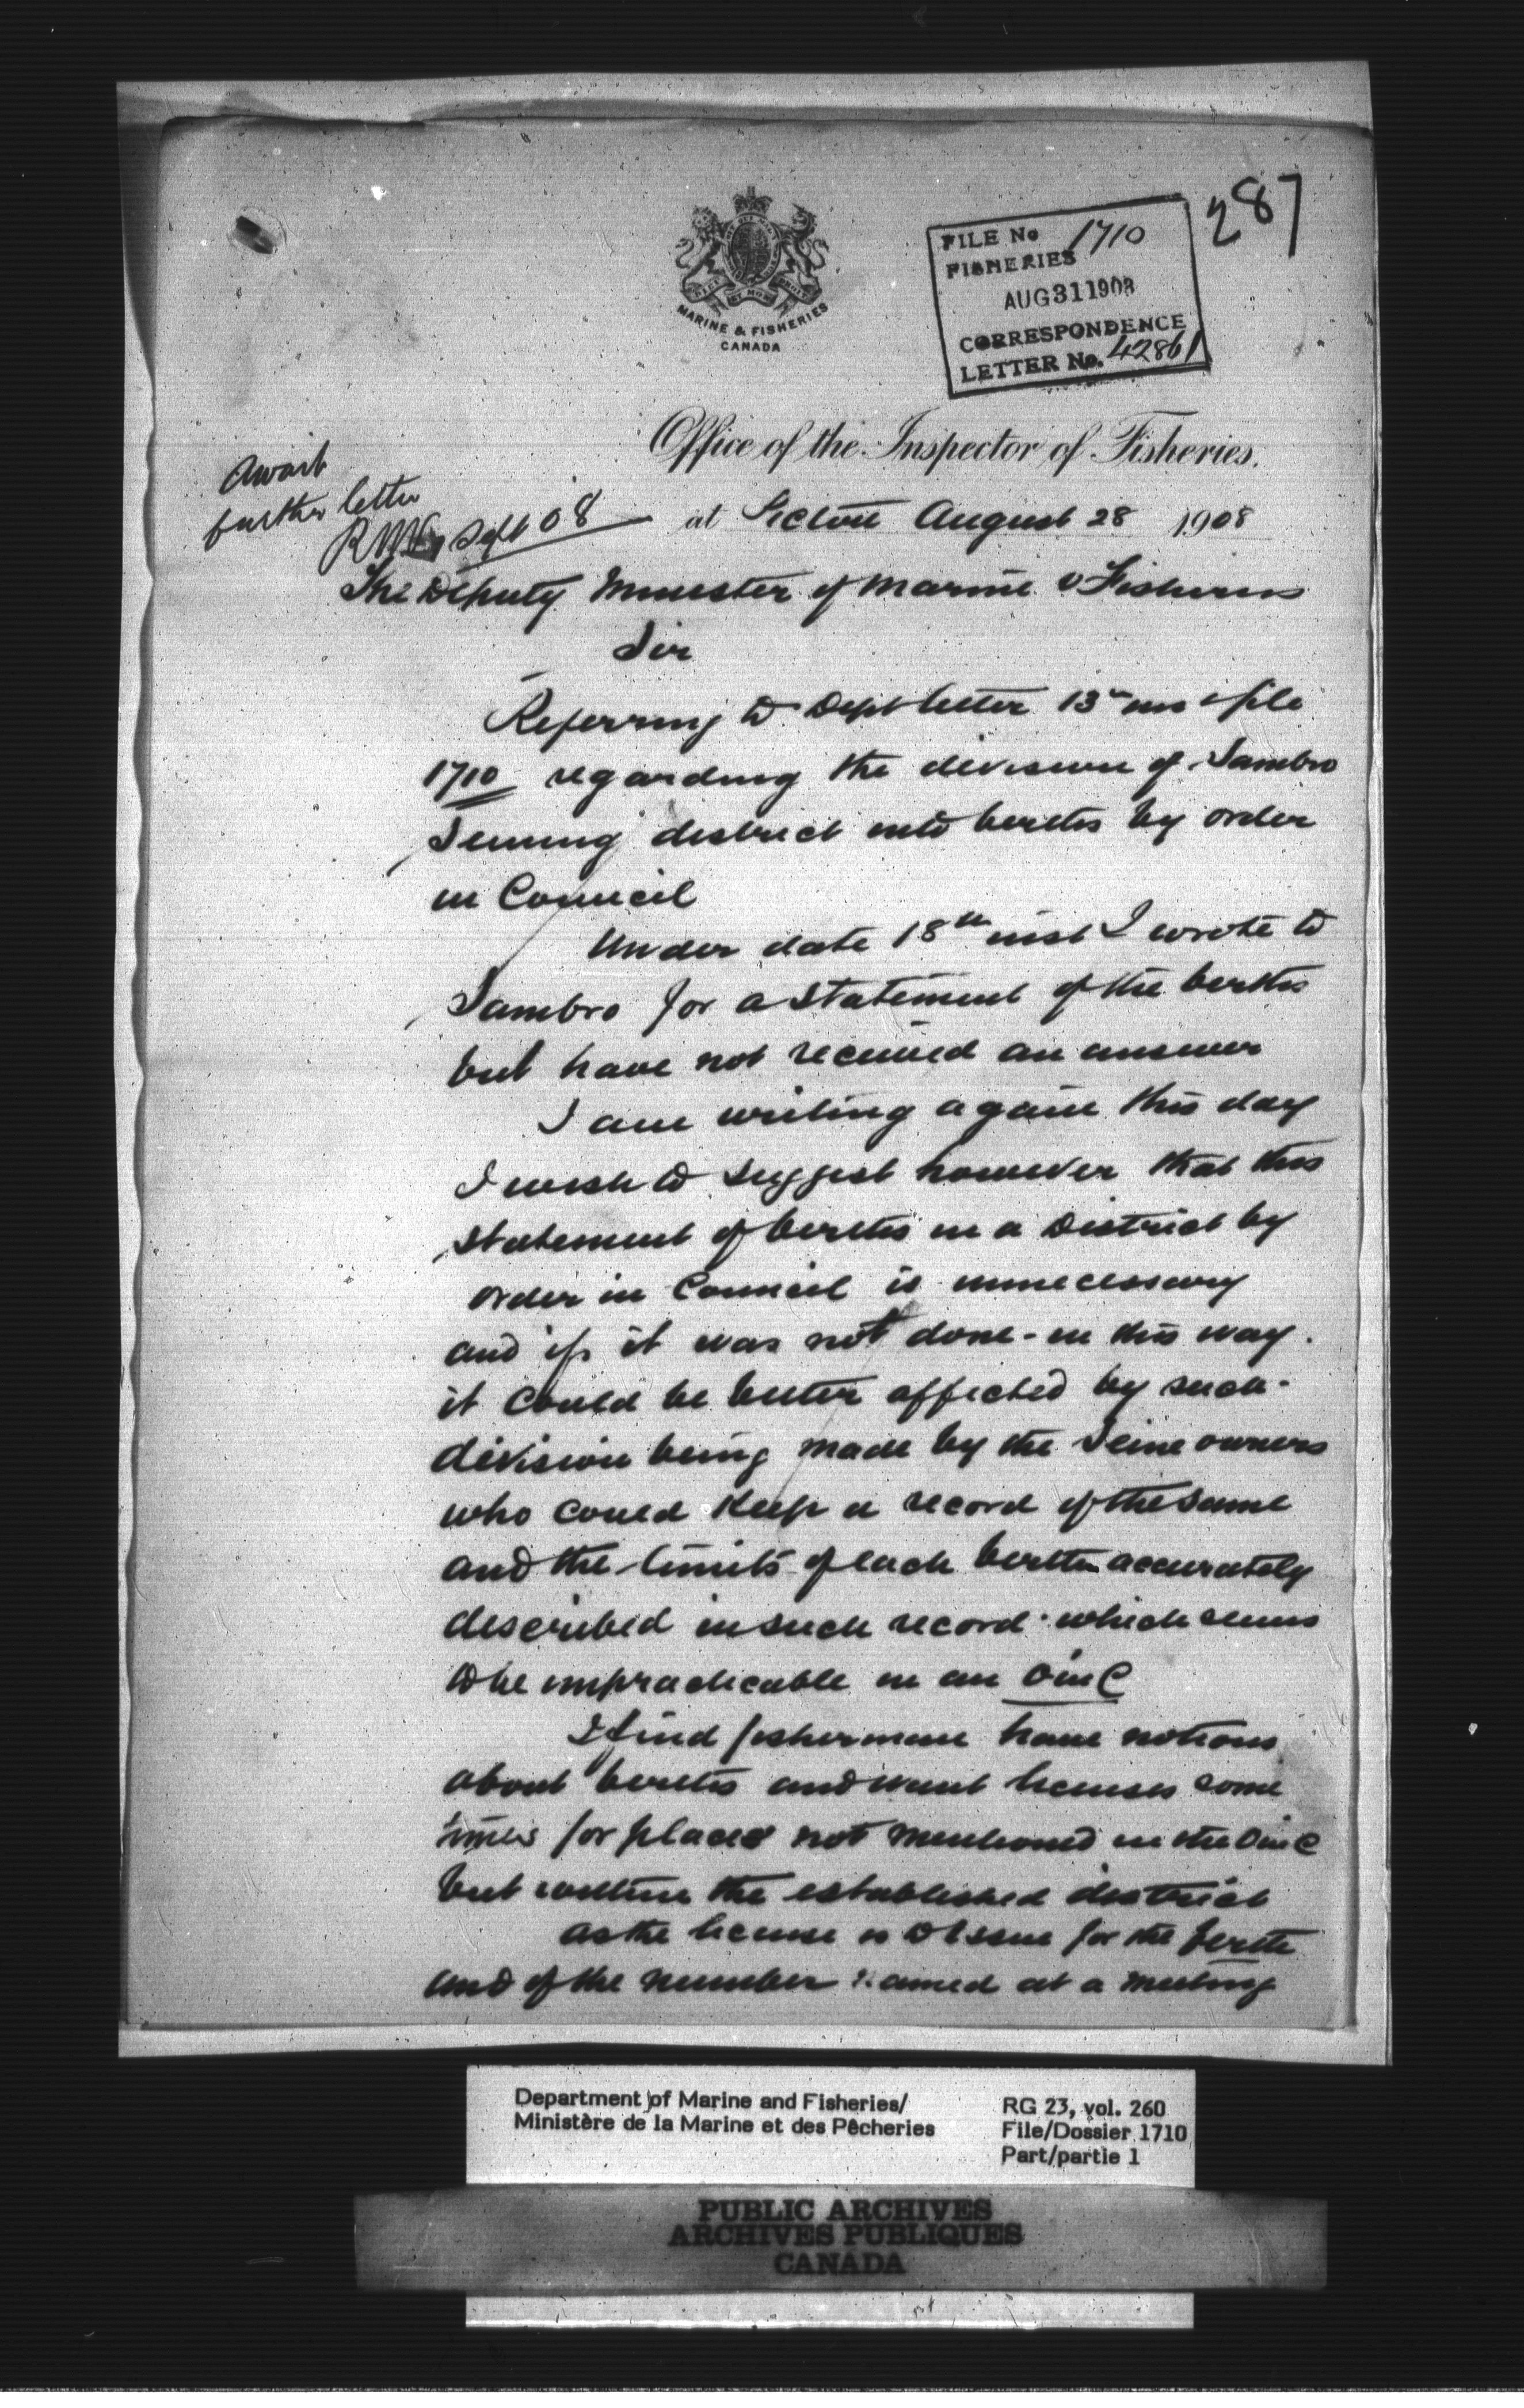 287
FILE No 1710
FISHERIES
AUG 31 1908
CORRESPONDENCE
LETTER No. 42861
MARINE & FISHERIES
CANADA
Office of the Inspector of Fisheries.
await
further letter
Sept 08
at Pictou August 28 1908
The Deputy Minister of Marine & Fisheries
Sir
Referring to Dept letter 13th ins & file
1710 regarding the division of Sambro
Seining district into berths by order
in Council
Under date 18th inst I wrote to
Sambro for a statement of the berths
but have not received an answer
I am writing again this day
I wish to suggest however that this
statement of berths in a District by
order in Council is unnecessary
and if it was not done - in this way.
it could be better affected by such -
division being made by the Seine owners
who could keep a record of the same
and the limits of each berth accurately
described in such record - which seems
to be impracticable in an OinC
I find fisherman have notions
about berths and want licenses some
times for places not mentioned in the OinC
but within the established district
as the license is to issue for the berth
and of the number named at a meeting
Department of Marine and Fisheries/
Ministère de la Marine et des Pêcheries
RG 23, vol. 260
File/Dossier 1710
Part/partie 1
PUBLIC ARCHIVES
ARCHIVES PUBLIQUES
CANADA